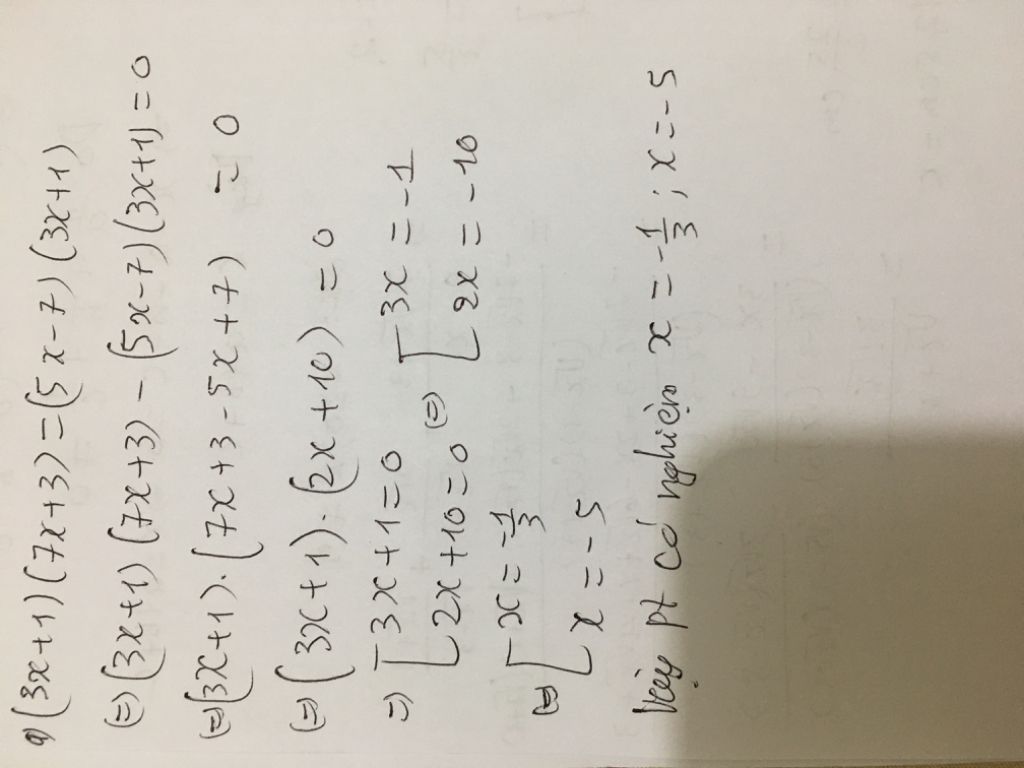 a) (3x+1)(7x+3)=(5x-7)(3x+1)
(=) (3x+1)(7x+3)-(5x-7)(3x+1)=0
(=) (3x+1).(7x+3-5x+7) = 0
(=) (3x+1).(2x+10)=0
=) [3x+1=0 [3x=-1
[2x+10=0 (=) [2x=-10
(=) [x=-1/3
[x=-5
Vậy pt có nghiệm x=-1/3; x=-5